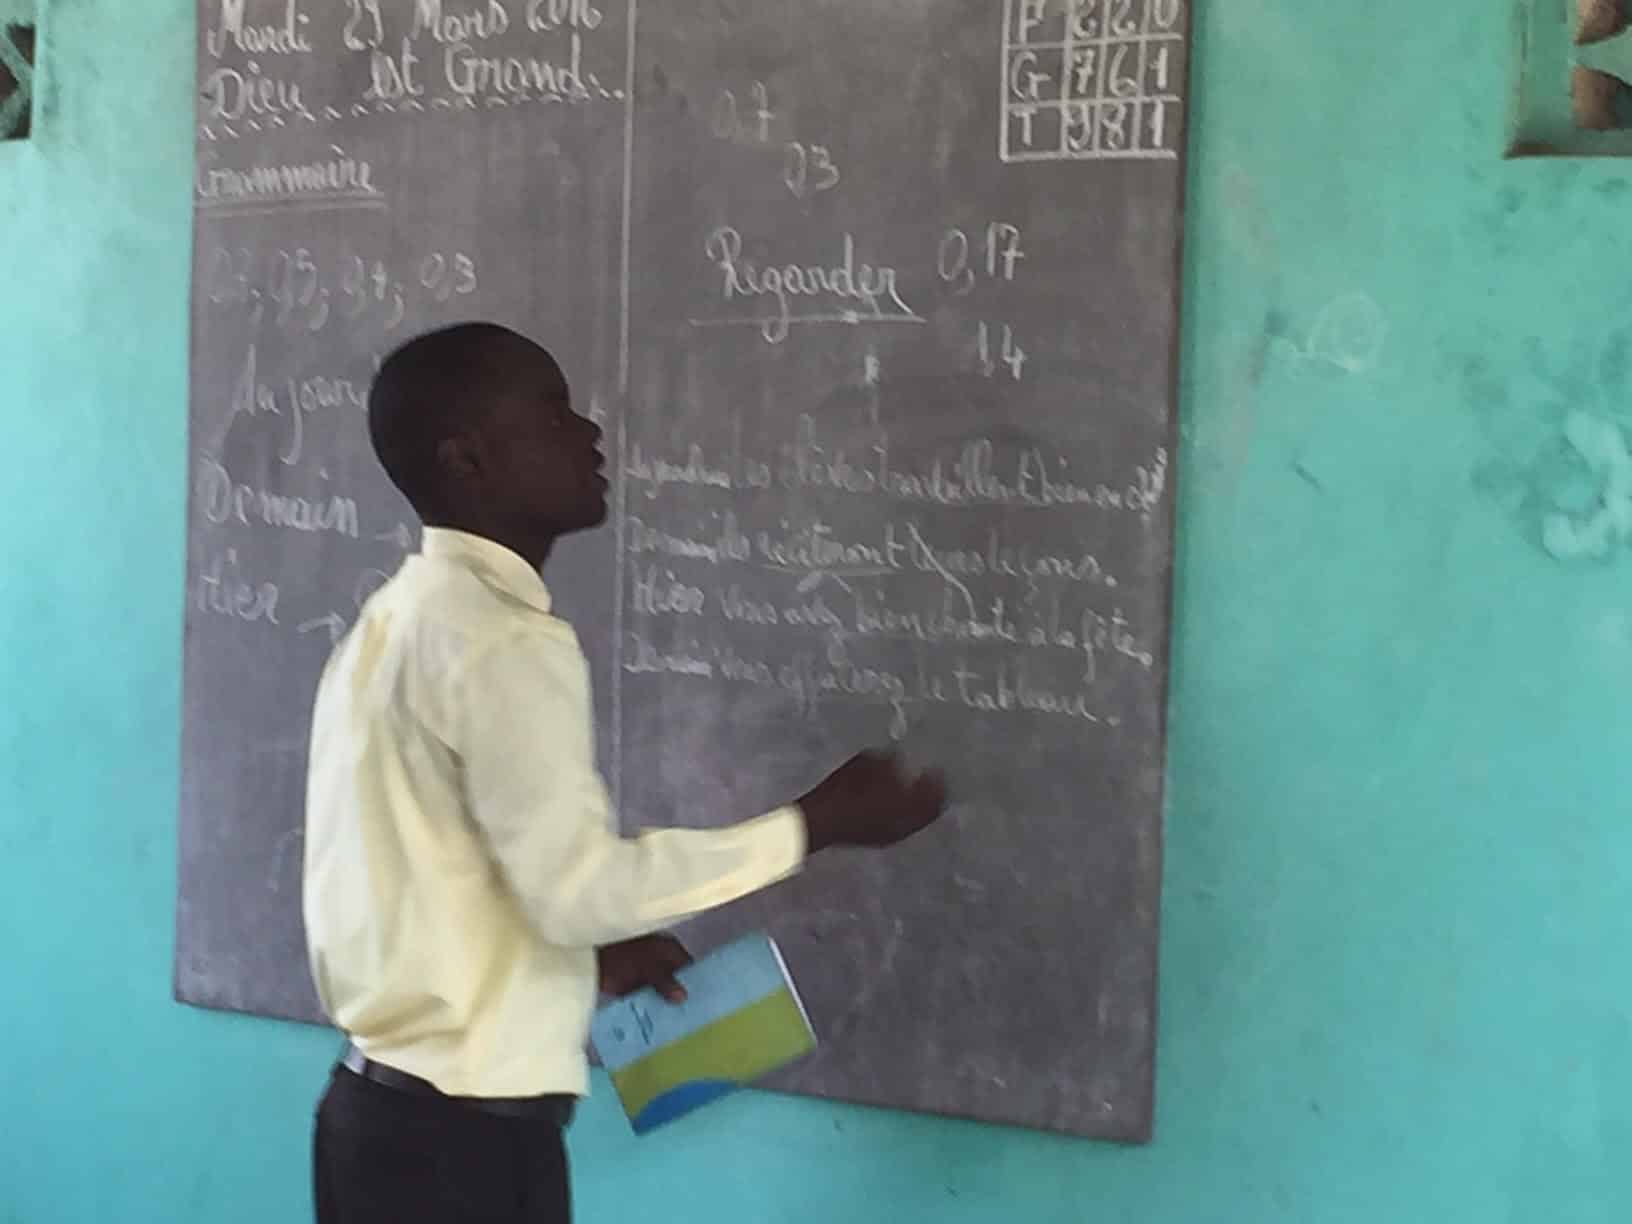 Mardi 29 Mars 2016
Dieu est Grand.
Grammaire
0,3
Demain →
Hier →
F 2 2 0
G 7 6 1
T 9 8 1
0,7
03
Regarder 0,17
14
les élèves travaillent bien en
Demain ils réciteront leçons.
Hier vous avez bien chanté à la fête.
Demain vous effacerez le tableau.